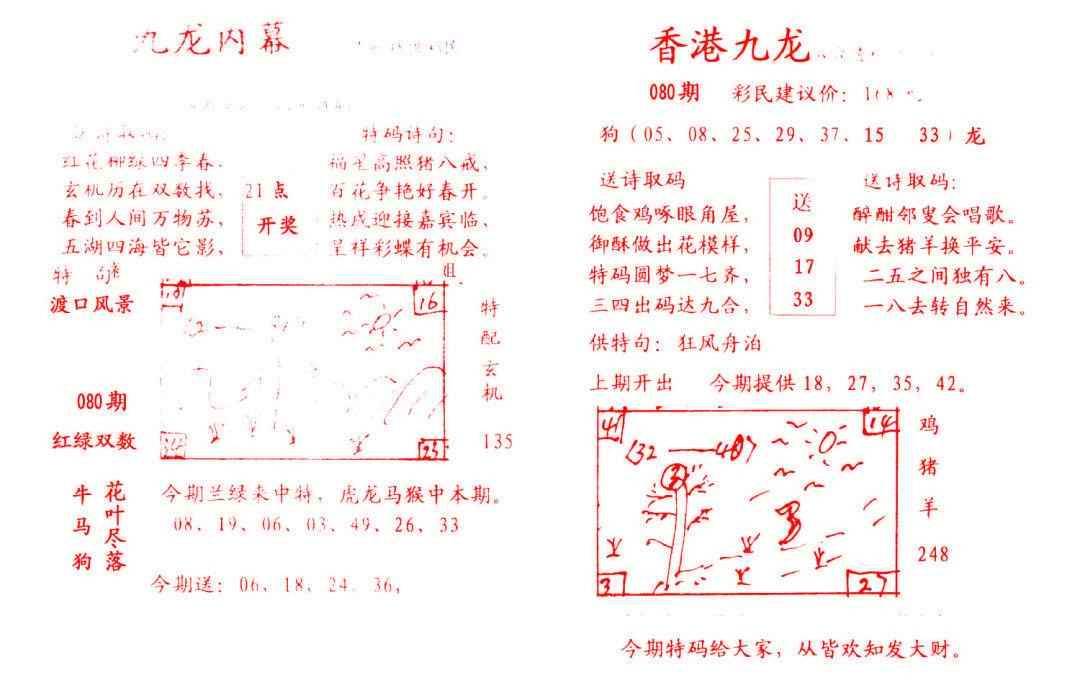 九龙内幕
特码诗句：
红花柳绿四季春，
玄机历在双数找，
春到人间万物苏，
五湖四海皆它影，
21点
开奖
福星高照猪八戒，
百花争艳好春开。
热戍迎接嘉宾临，
呈祥彩蝶有机会。
特
渡口风景
080期
红绿双数
16
23
特配玄机
135
牛马狗
花叶尽落
今期兰绿来中特，虎龙马猴中本期。
08、19、06、03、49、26、33
今期送：06、18、24、36，
香港九龙
080期 彩民建议价：
狗（05、08、25、29、37、15 33）龙
送诗取码
饱食鸡啄眼角屋，
御酥做出花模样，
特码圆梦一七齐，
三四出码达九合，
送
09
17
33
送诗取码：
醉酣邻叟会唱歌。
献去猪羊换平安。
二五之间独有八。
一八去转自然来。
供特句：狂风舟泊
上期开出 今期提供18，27，35，42。
41
14
3
27
鸡
猪
羊
248
今期特码给大家，从皆欢知发大财。